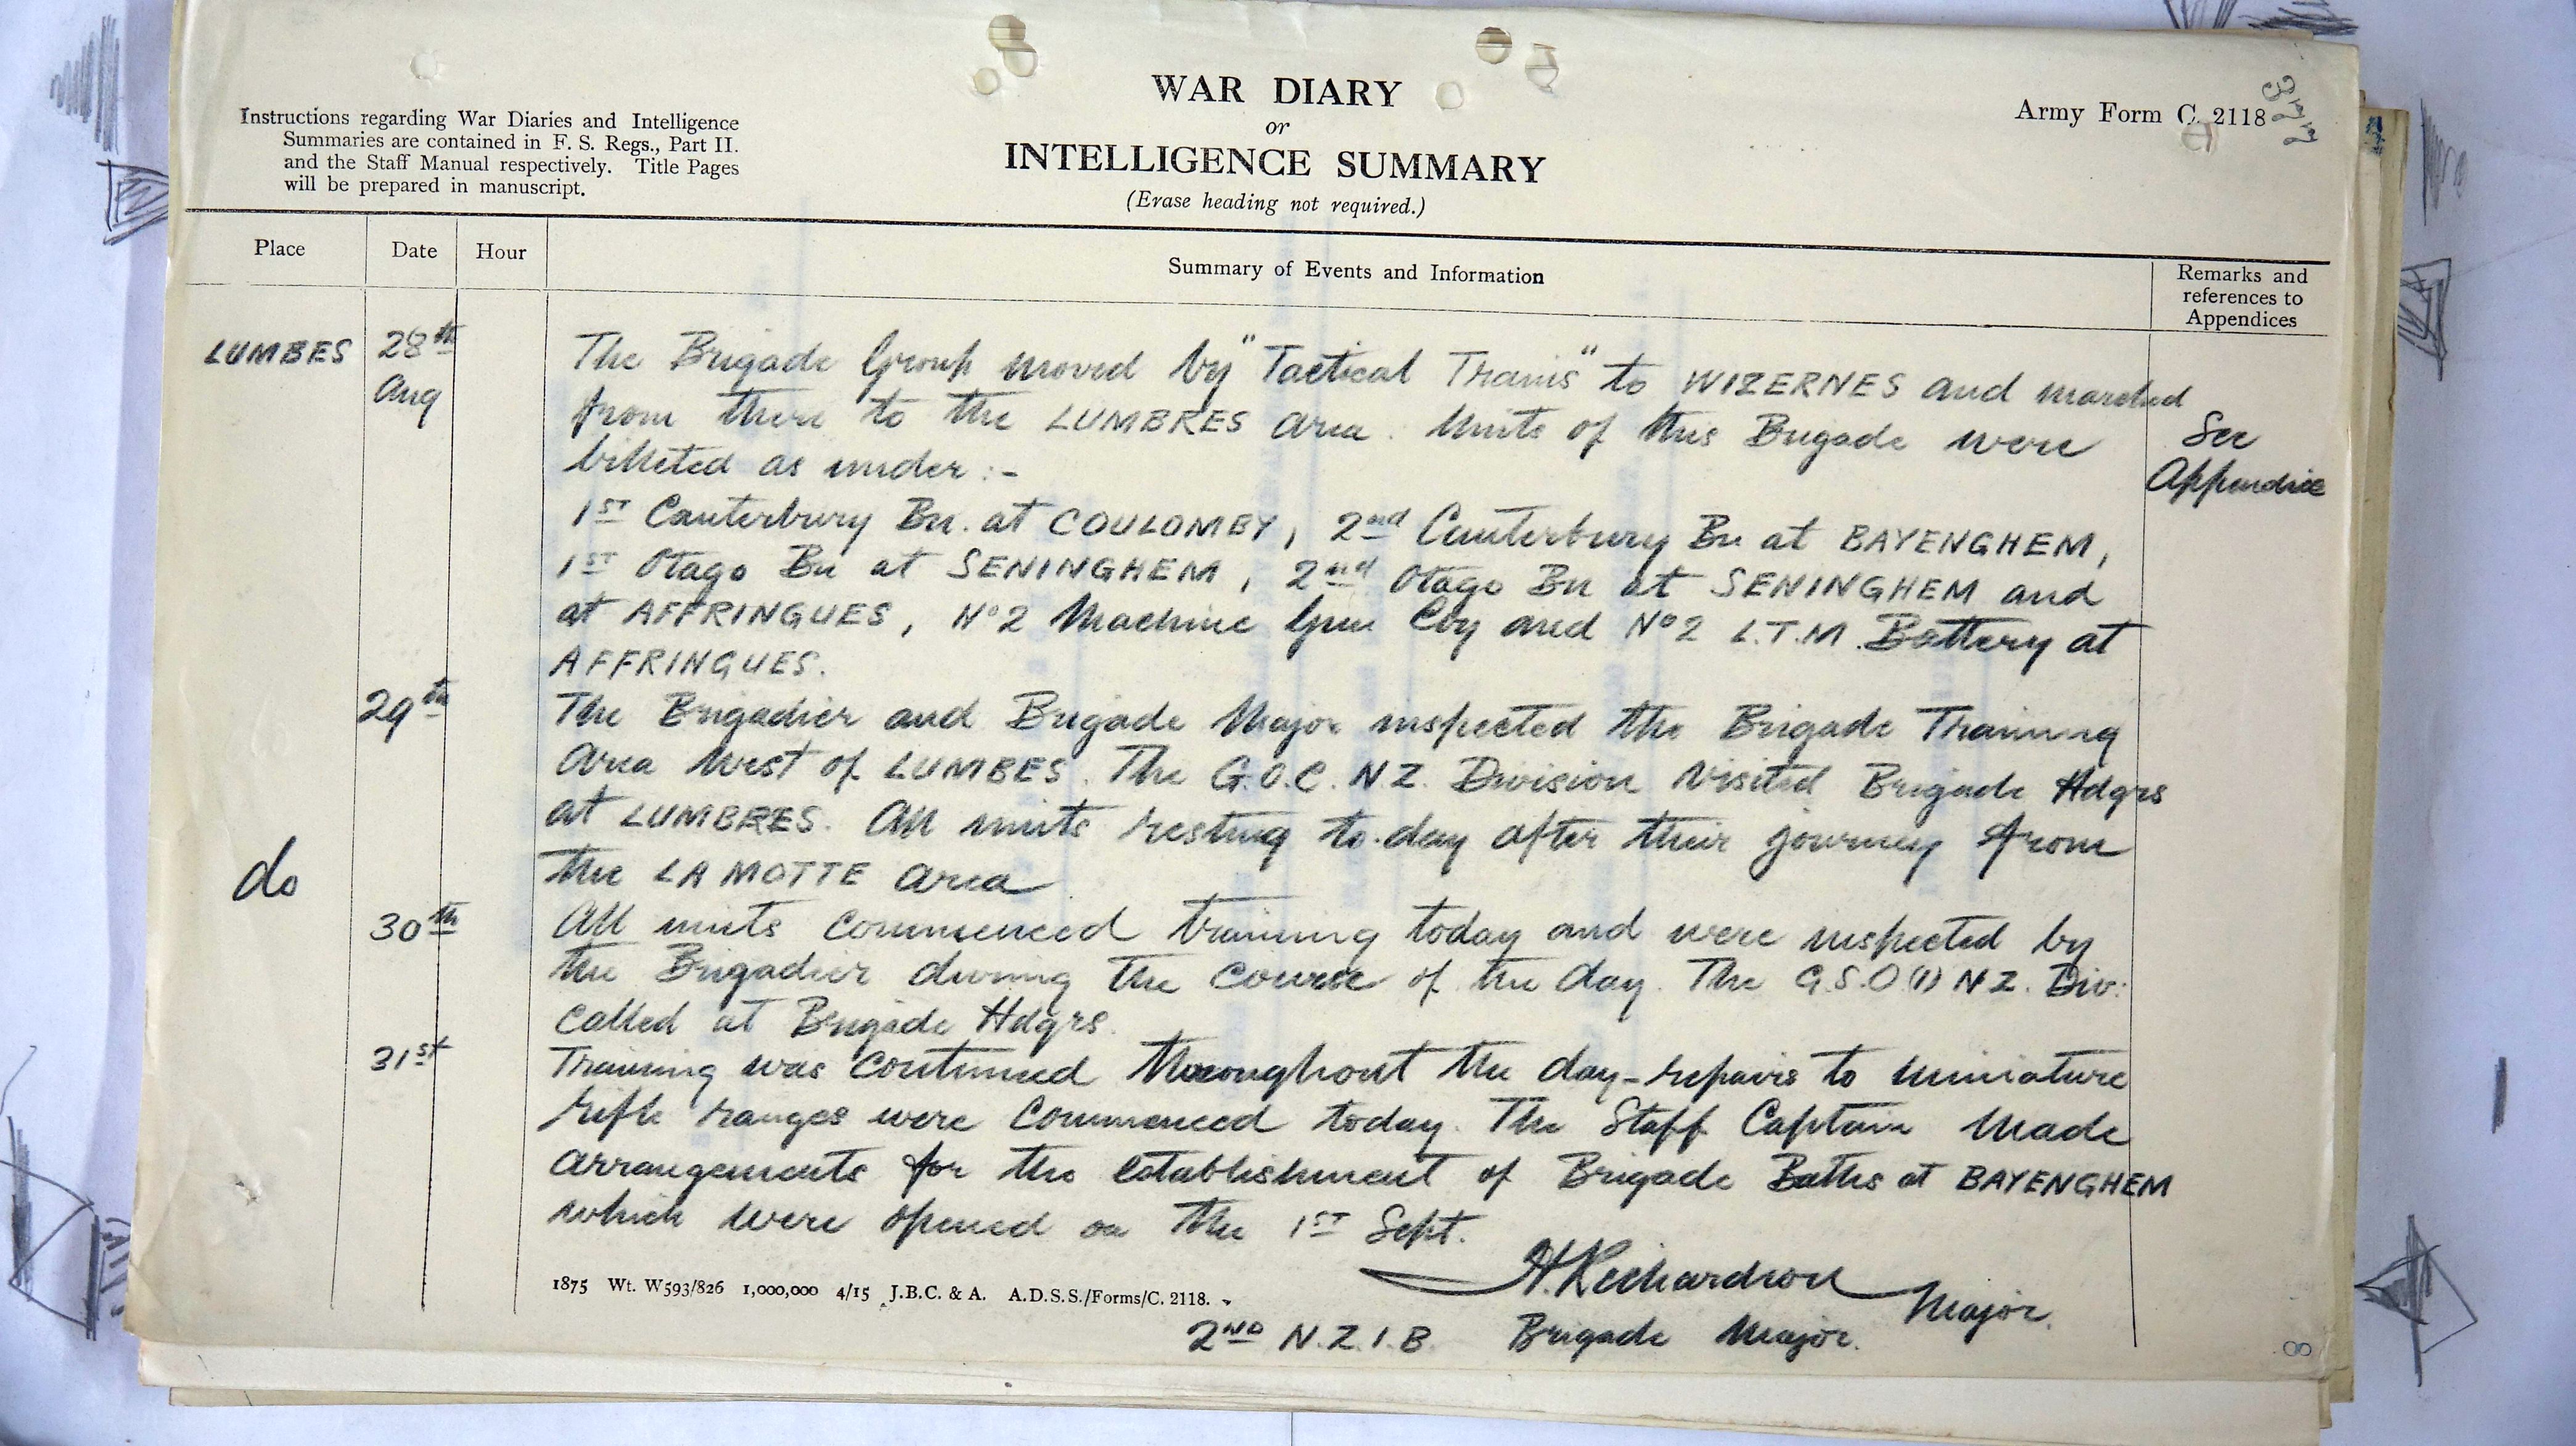 WAR DIARY
or
INTELLIGENCE SUMMARY
(Erase heading not required.)
Instructions regarding War Diaries and Intelligence
Summaries are contained in F. S. Regs., Part II.
and the Staff Manual respectively. Title Pages
will be prepared in manuscript.
Army Form C. 2118
Place
Date
Hour
Summary of Events and Information
Remarks and
references to
Appendices
LUMBES
28th
Aug
The Brigade Group moved by "Tactical Trains" to WIZERNES and marched
from there to the LUMBRES area. Units of this Brigade were
billeted as under :-
See
Appendice
1ST Canterbury Bn. at COULOMBY, 2nd Canterbury Bn at BAYENGHEM,
1ST Otago Bn at SENINGHEM, 2nd Otago Bn at SENINGHEM and
at AFFRINGUES, No 2 Machine Gun Coy and No 2 L.T.M. Battery at
AFFRINGUES.
29th
The Brigadier and Brigade Major inspected the Brigade Training
Area West of LUMBES. The G.O.C. N.Z. Division visited Brigade Hdqrs
at LUMBRES. All units resting to-day after their journey from
the LA MOTTE area
do
30th
All units commenced training today and were inspected by
the Brigadier during the course of the day. The G.S.O (1) N Z. Div:
called at Brigade Hdqrs.
31st
Training was continued throughout the day - repairs to miniature
rifle ranges were commenced today. The Staff Captain made
arrangements for the establishment of Brigade Baths at BAYENGHEM
which were opened on the 1ST Sept.
H Richardson Major.
1875 Wt. W593/826 1,000,000 4/15 J.B.C. & A. A.D.S.S./Forms/C. 2118.
2ND N.Z.I.B. Brigade Major.
8